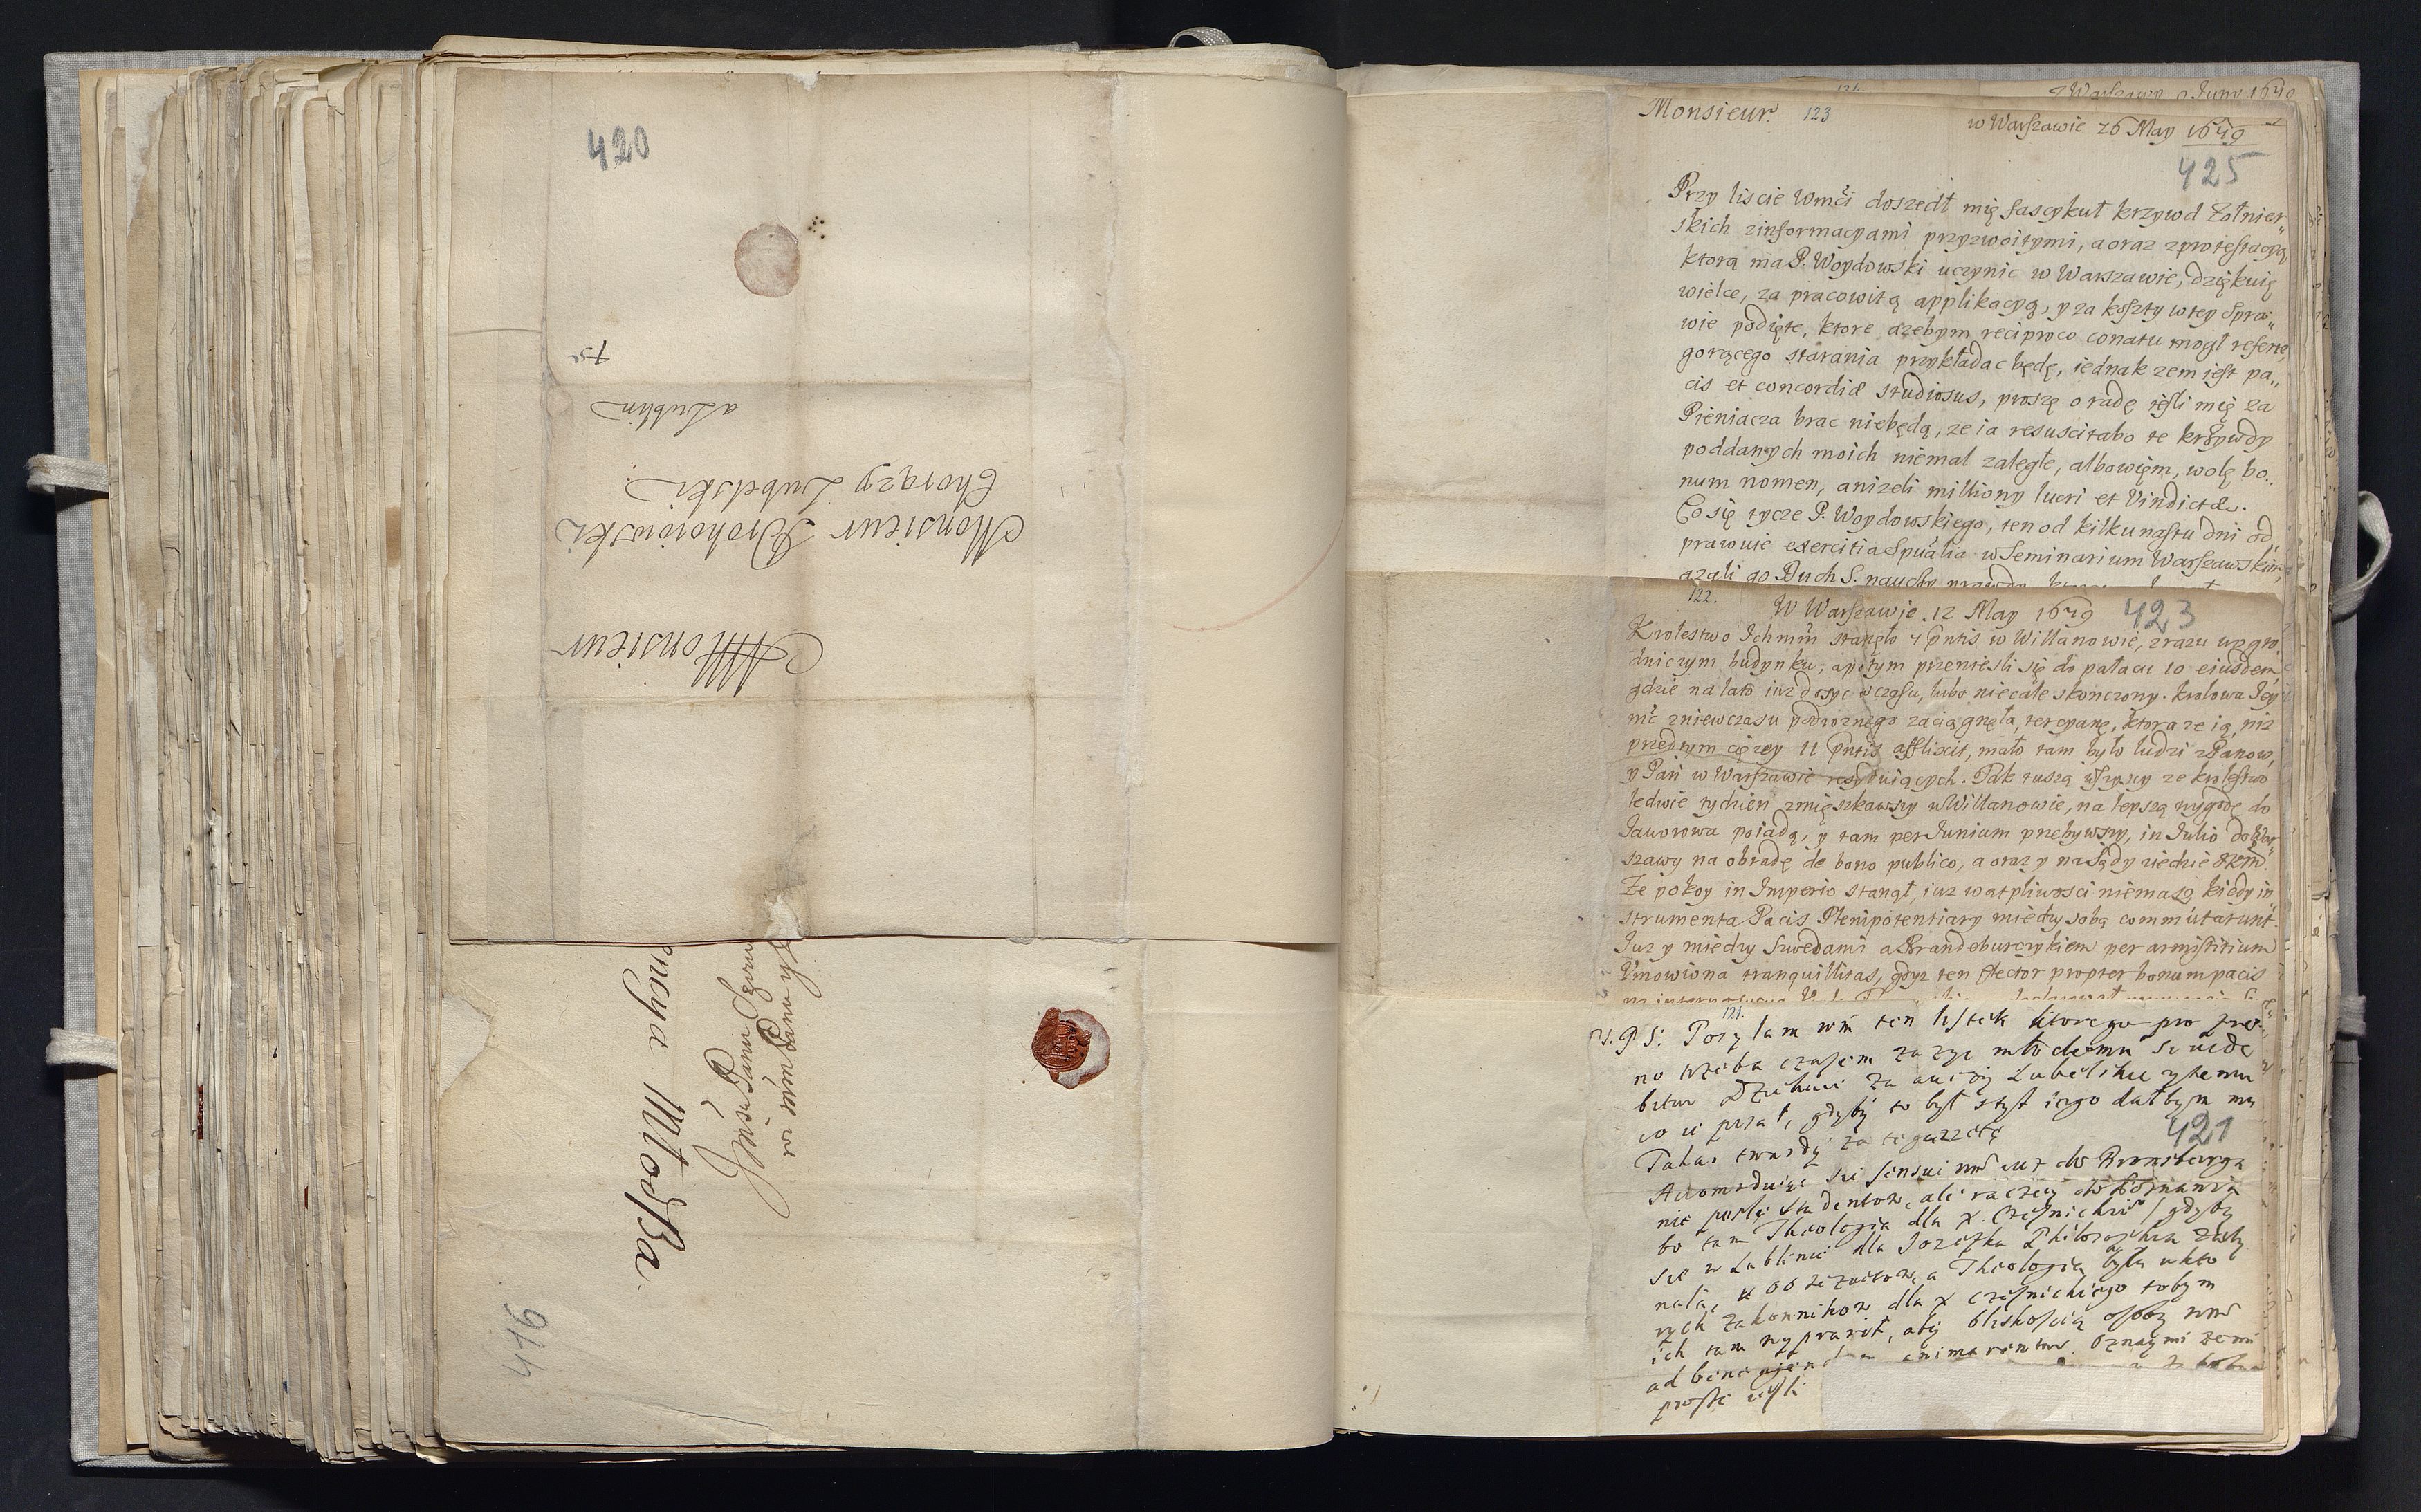 420
fse
a Lublin
Chorązy Lubelski
Monsieur Drohoiowski
Monsieur
ncya Młodßa
Jmśu Panu
wi mm Panu y
416
124.
z Warszawy 9 Juny 1679
Monsieur. 123
w Warszawie 26 May 1679
425
Przy liscie Wmći doszedł mię fascykuł krzywd Zołnier„
skich zinformacyami przyzwoitymi, aoraz zprotestacyą
ktorą ma P. Woydowski uczynic w Warszawie, dziękuię
wielce, za pracowitą applikacyą, y za koszty wtey Spra„
wie podięte, ktore azebym reciproco conatu mogł referre,
gorącego starania przykładac będę, iednak zem iest pa„
cis et concordiæ studiosus, proszę o radę iesli mię za
Pieniacza brac niebędą, ze ia resuscitabo te krzywdy
poddanych moich niemal zaległe, albowięm, wolę bo„
num nomen, anizeli milliony lucri et Vindictæ.
Co się tycze P. Woydowskiego, ten od kilkunastu dni od„
prawuie exercitia Spuãlia w Seminarium Warszawskim,
azali go Duch S. nauczy prawdy
122.
W Warszawie. 12 May 1679
423
Krolestwo Ichmm stanęło 7 Pntis w Willanowie, zrazu w ogro„
dniczym budynku, apotym przeniesli się do pałacu 10 eiusdem,
gdzie na lato iuz dosyc wczasu, lubo niecale skonczony. Krolowa Jey
mć zniewczasu podroznego zaciągnęła tercyanę, ktora ze ią, niz
przedtym cięzey 11 Pntis afflixit, mało tam było ludzi z Panow,
y Pań w Warszawie rezyduiących. Tak tuszą wszyscy ze krolestwo
ledwie tydzien zmięszkawszy w Willanowie, na lepszą wygodę do
Jaworowa poiadą, y tam per Junium przebywszy, in Julio do War„
szawy na obradę de bono publico, a oraz y na Sądy ziedzie JKM.
Ze pokoy in Imperio stanął, iuz wątpliwosci niemasz, kiedy in„
strumenta Pacis Plenipotentiary miedzy sobą commutarunt.
Juz y miedzy Szwedami a Brandeburczykiem per armistitium
Vmowiona tranquillitas, gdyz ten Elector propter bonum pacis
121.
P.S. Posyłam wm ten listek ktorego pro
no trzeba czasem zazyc młodemu
Dziekuie za auizy Lubelskie y temu
co ie pisał, gdyby to był styl iego dałbym mu
Talar twardy za te gazzetę
421
Accomoduiąc się sensui wm iuz do Bronsberga
nie poslę studentow, ale raczey do Poznania
bo tam Theologia dla X. Czesnickiego gdyby
się w Lublinie dla Jozefka Philosophia
nala, u OO Jezuitow, a Theologia była u kto
rych Zakonnikow dla X Czesnickiego tobym
ich tam wyprawił, aby bliskoscią osoby wm
ad bene agendum animarentur. Oznaymi ze mi
proszę iesli